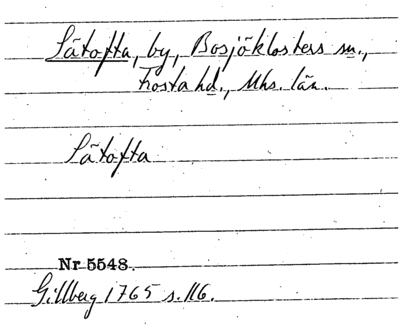 Sätofta, by, Bosjöklosters sn.,
Frosta hd., Mhs. län.
Sätofta
Nr 5548.
Gillberg 1765 s. 116.